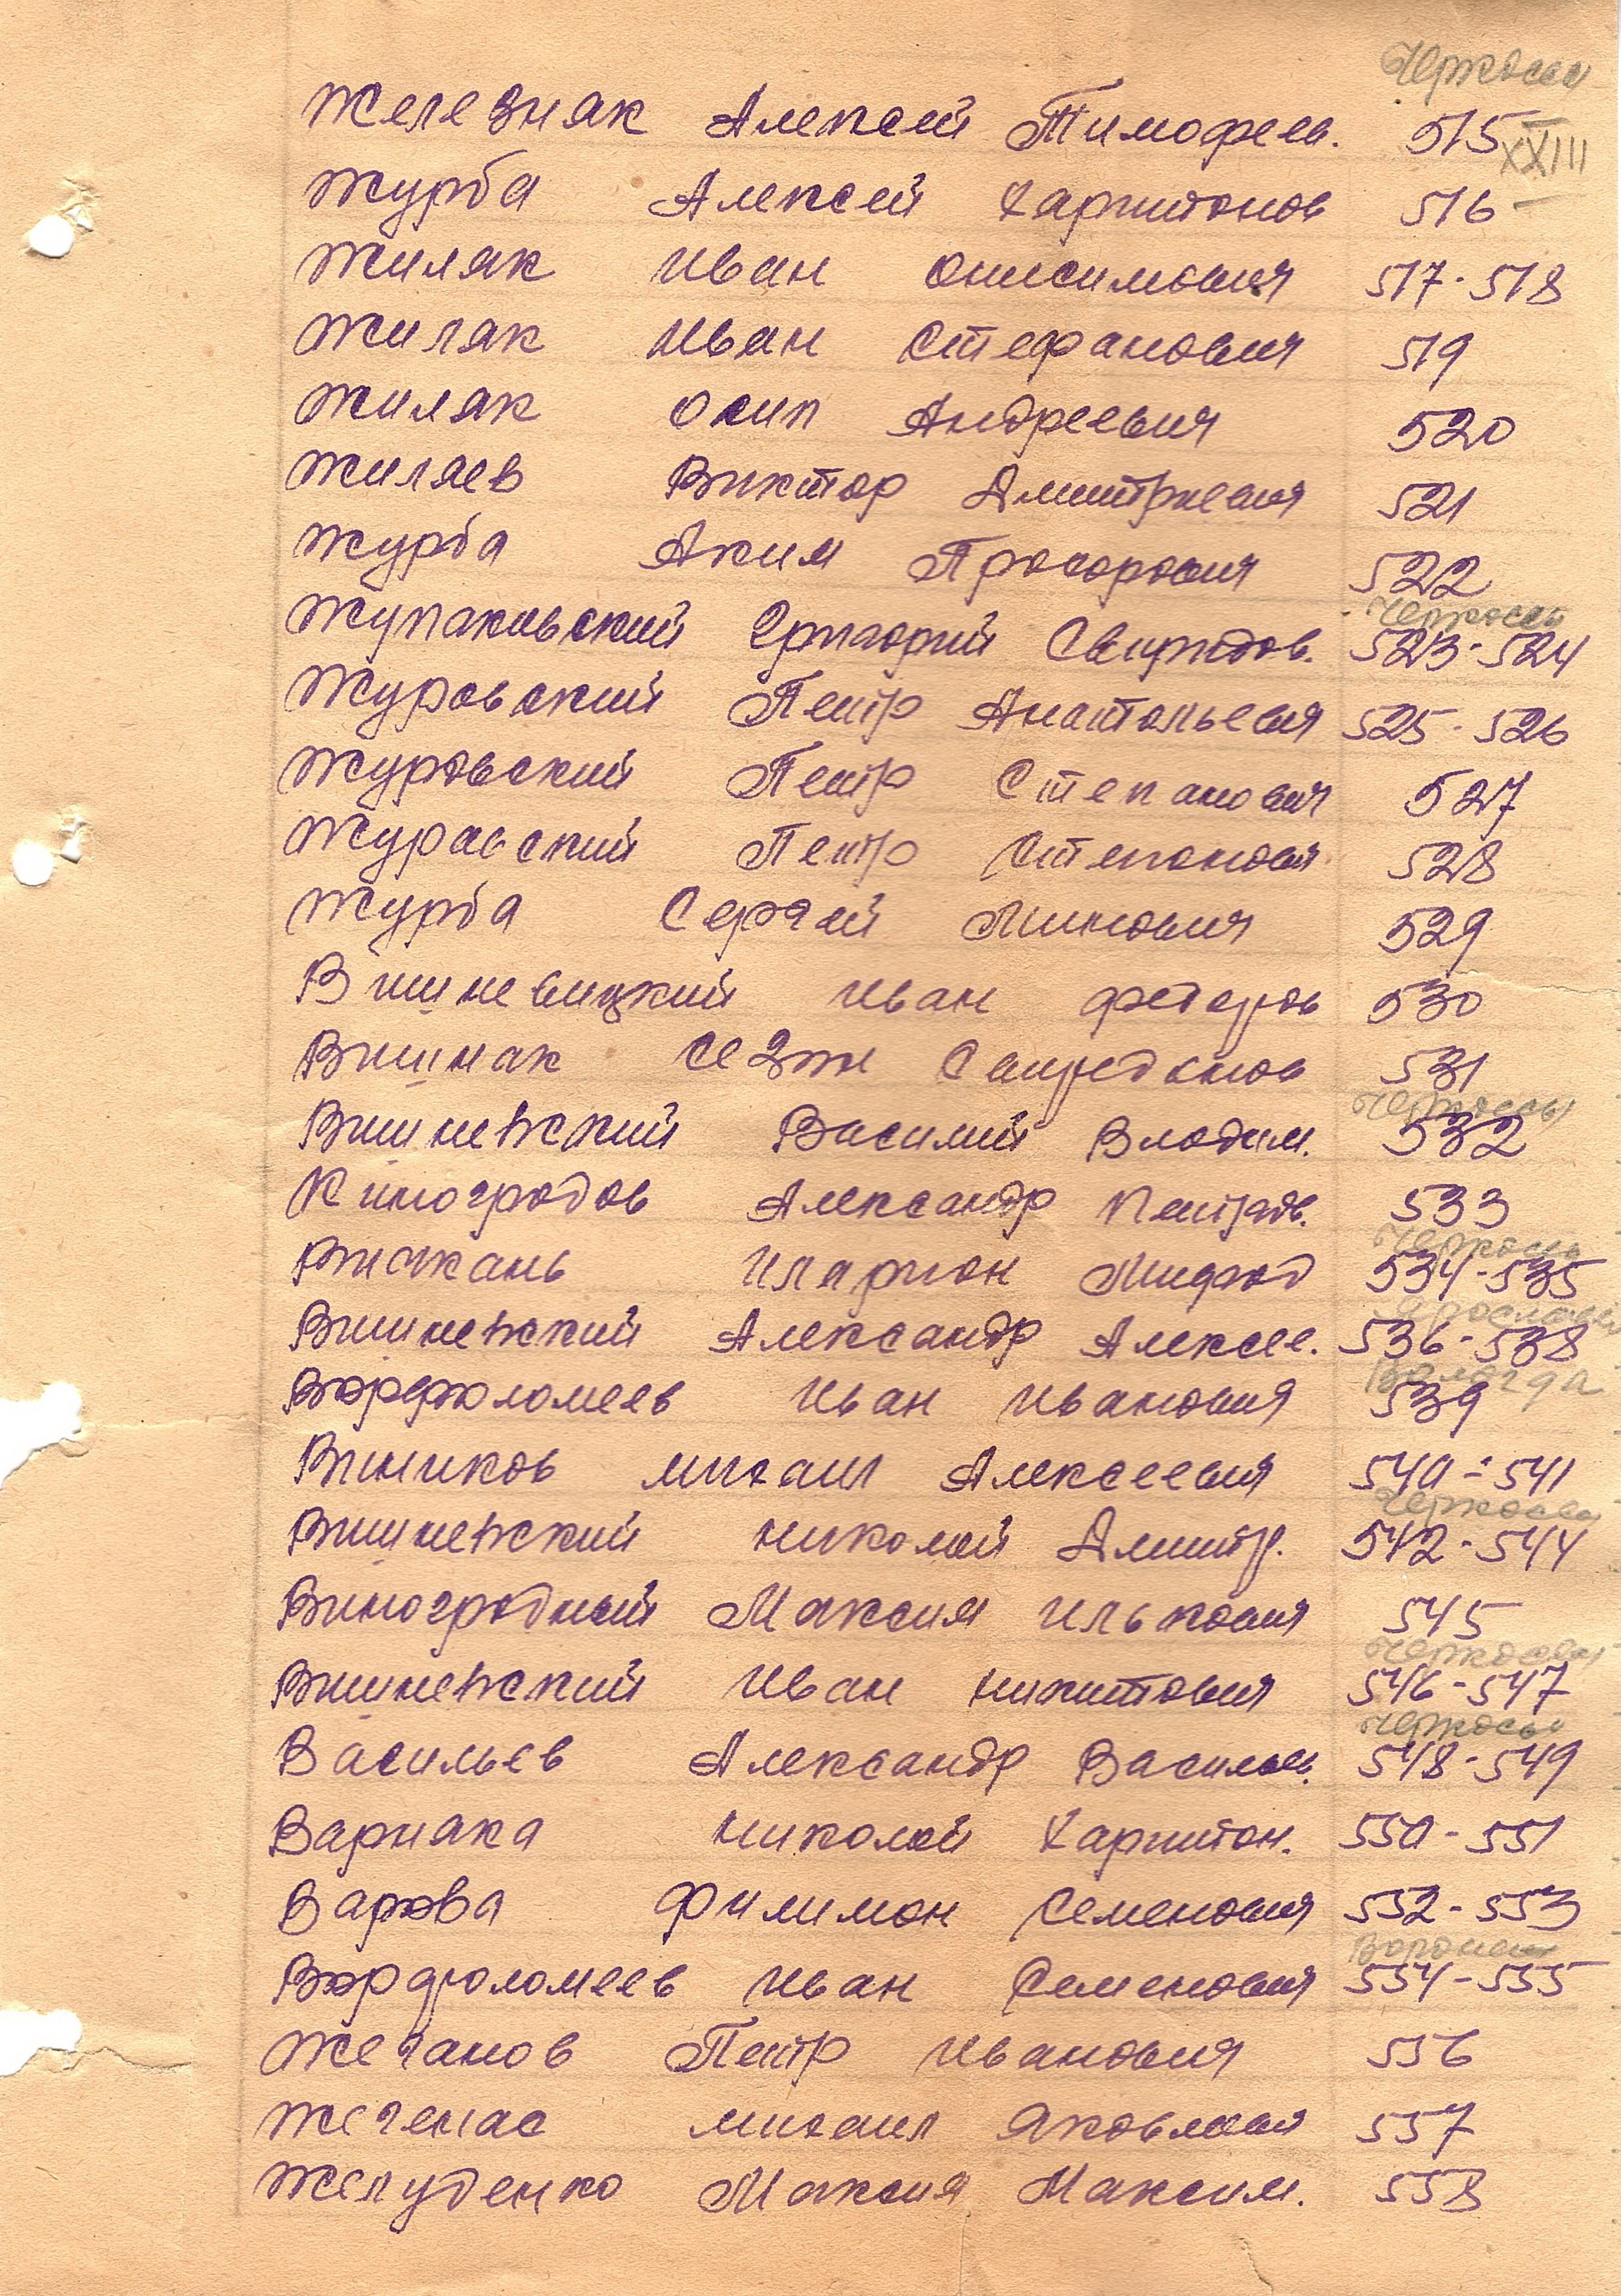 Черкассы
Железняк Алексей Тимофеев. 515
XXIII
Журба Алексей Харитонов 516
Жиляк Иван Онисимович 517-518
Жиляк Иван Стефанович 519
Жиляк Осип Андреевич 520
Жиляев Виктор Дмитриевич 521
Журба Аким Прохорович 522
Черкассы
Жупаковский Григорий Свиридов. 523-524
Журовский Петр Анатольевич 525-526
Журовский Петр Степанович 527
Журавский Петр Степанович 528
Журба Сергей Минович 529
Вишневицкий Иван Федоров 530
Вишняк Спиридонов 531
Черкассы
Вишневский Василий Владим. 532
Виноградов Александр 533
Черкассы
Иларион 534-535
Ярославль
Вишневский Александр Алексее. 536-538
Вологда
Варфоломеев Иван Иванович 539
Винников Михаил Алексеевич 540-541
Черкассы
Вишневский Николай Дмитр. 542-544
Виноградный Максим Илькович 545
Черкассы
Вишневский Иван Никитович 546-547
Черкассы
Васильев Александр Васильев. 548-549
Варнака Николай Харитон. 550-551
Варава Филимон Семенович 552-553
Воронеж
Варфоломеев Иван Семенович 554-555
Жеганов Петр Иванович 556
Михаил Яковлевич 557
Желуденко Максим Максим. 558